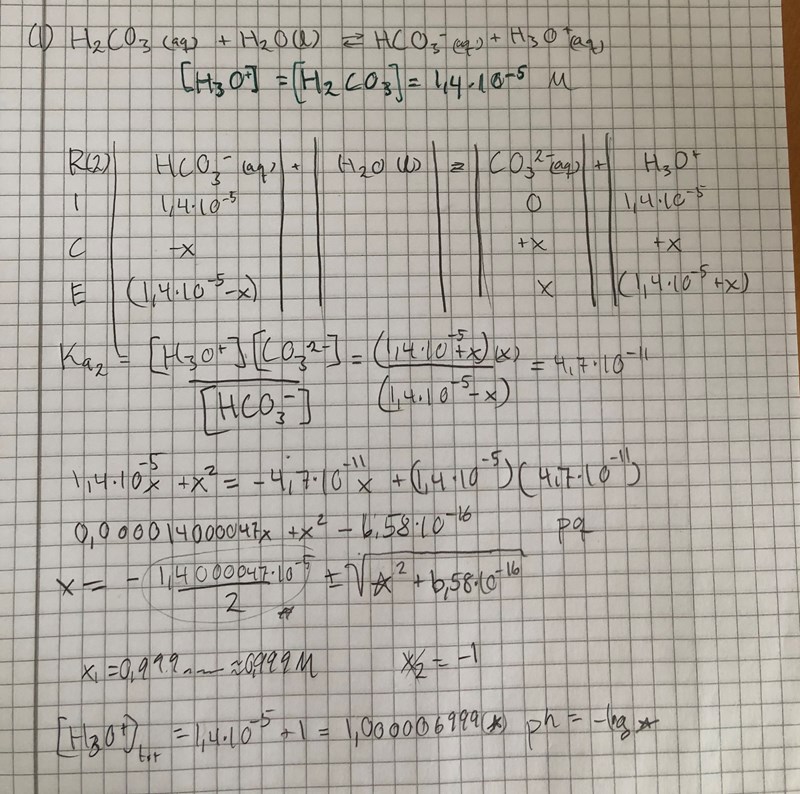 (1) H₂CO₃ (aq) + H₂O(l) ⇌ HCO₃⁻(aq) + H₃O⁺(aq)
[H₃O⁺] = [H₂CO₃] = 1,4·10⁻⁵ M
R(2) | HCO₃⁻ (aq) | + | H₂O (l) | ⇌ | CO₃²⁻(aq) | + | H₃O⁺
I | 1,4·10⁻⁵ | 0 | 1,4·10⁻⁵
C | -x | +x | +x
E | (1,4·10⁻⁵-x) | x | (1,4·10⁻⁵+x)
Ka₂ = [H₃O⁺][CO₃²⁻] / [HCO₃⁻] = (1,4·10⁻⁵+x)(x) / (1,4·10⁻⁵-x) = 4,7·10⁻¹¹
1,4·10⁻⁵x + x² = -4,7·10⁻¹¹x + (1,4·10⁻⁵)(4,7·10⁻¹¹)
0,000014000047x + x² - 6,58·10⁻¹⁶ pq
x = - 1,4000047·10⁻⁵ / 2 ± √(☆² + 6,58·10⁻¹⁶) ☆
x₁ = 0,999... ≈ 0,999 M x₂ = -1
[H₃O⁺]tot = 1,4·10⁻⁵ + 1 = 1,000006999(☆) ph = -log ☆